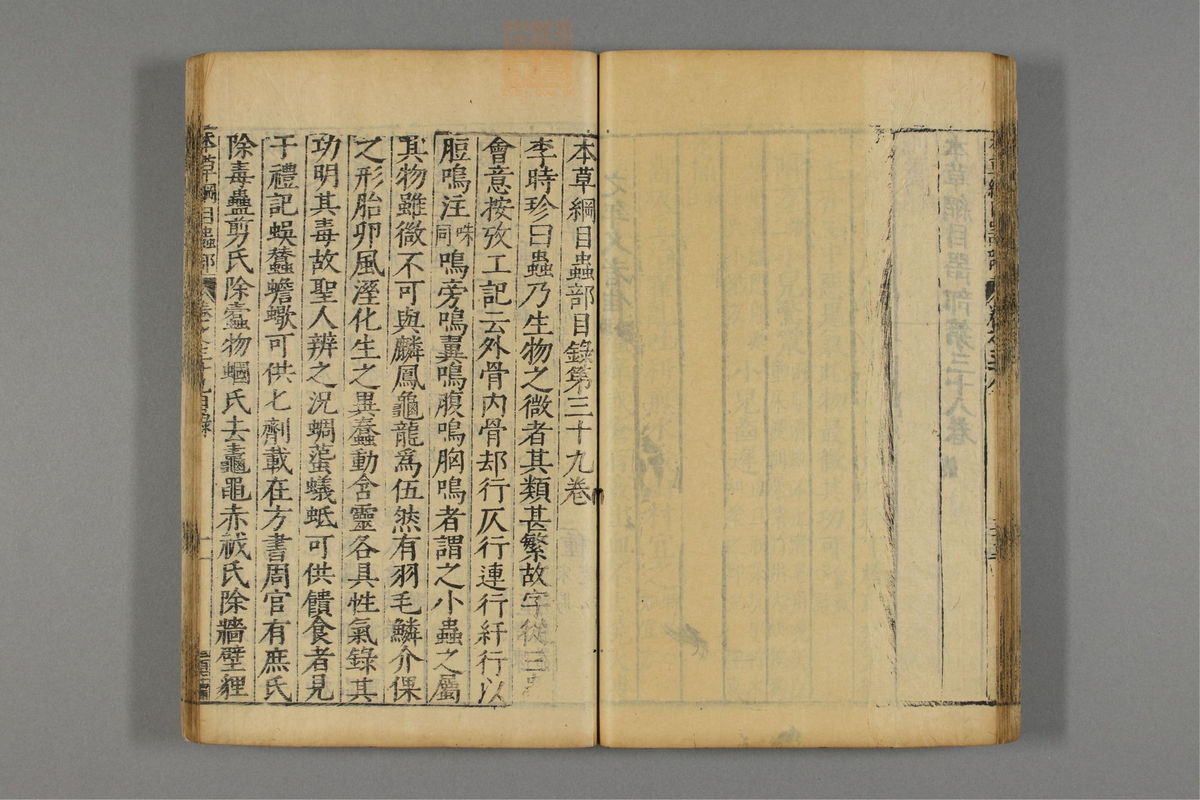 本草綱目器部第三十八卷
本草綱目蟲部目錄第三十九卷
李時珍曰蟲乃生物之微者其類甚繁故字從三虫
會意按攷工記云外骨內骨却行仄行連行紆行以
脰鳴注咮同鳴旁鳴翼鳴腹鳴胸鳴者謂之小蟲之屬
其物雖微不可與麟鳳龜龍爲伍然有羽毛鱗介倮
之形胎卵風溼化生之異蠢動含靈各具性氣錄其
功明其毒故聖人辨之況蜩䘉蟻蚳可供饋食者見
于禮記蜈蠶蟾蠍可供匕劑載在方書周官有庶氏
除毒蠱剪氏除蠹物蟈氏去鼃黽赤祓氏除牆壁貍
本草綱目蟲部 卷之三十九目錄